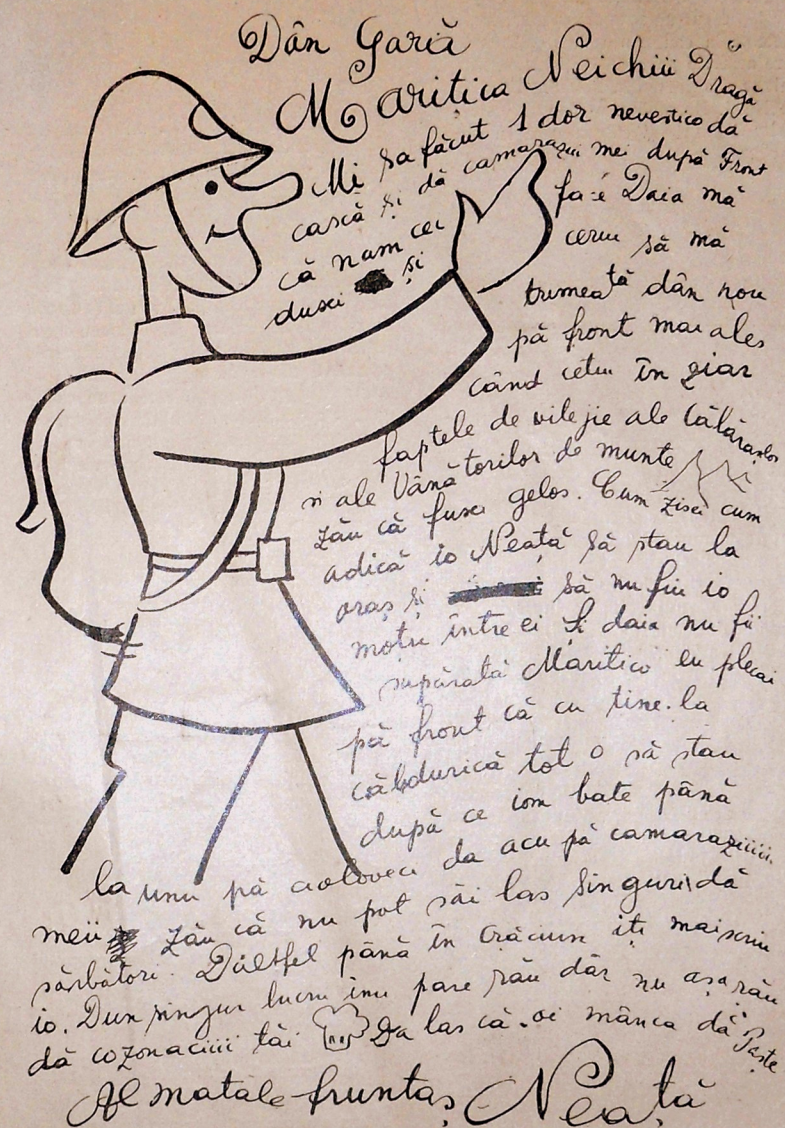 Dân Gară
Maritica Neichiii Dragă
Mi sa făcut 1 dor nevestico dă
cască și dă camarazii mei după Front
că nam cei fa e Daia mă
dusei și ceru să mă
trumeată dân nou
pă front mai ales
când cetiu în ziar
faptele de vilejie ale Călărașilor
și ale Vânătorilor de munte
Zău că fusei gelos. Cum zisei cum
adică io Neață să stau la
oraș și să nu fiu io
moțu între ei Și daia nu fi
supărată Maritico eu plecai
pă front că cu tine la
căldurică tot o să stau
după ce iom bate până
la unu pă aoloveci da acu pă camaraziiiii
meii Zău că nu pot săi las singuri dă
sărbători. Dăltfel până în Crăciun iți mai scriu
io. Dun singur lucru imi pare rău dăr nu așa rău
dă cozonaciiii tăi Da las că oi mânca dă Paște
Al matale fruntaș, Neață